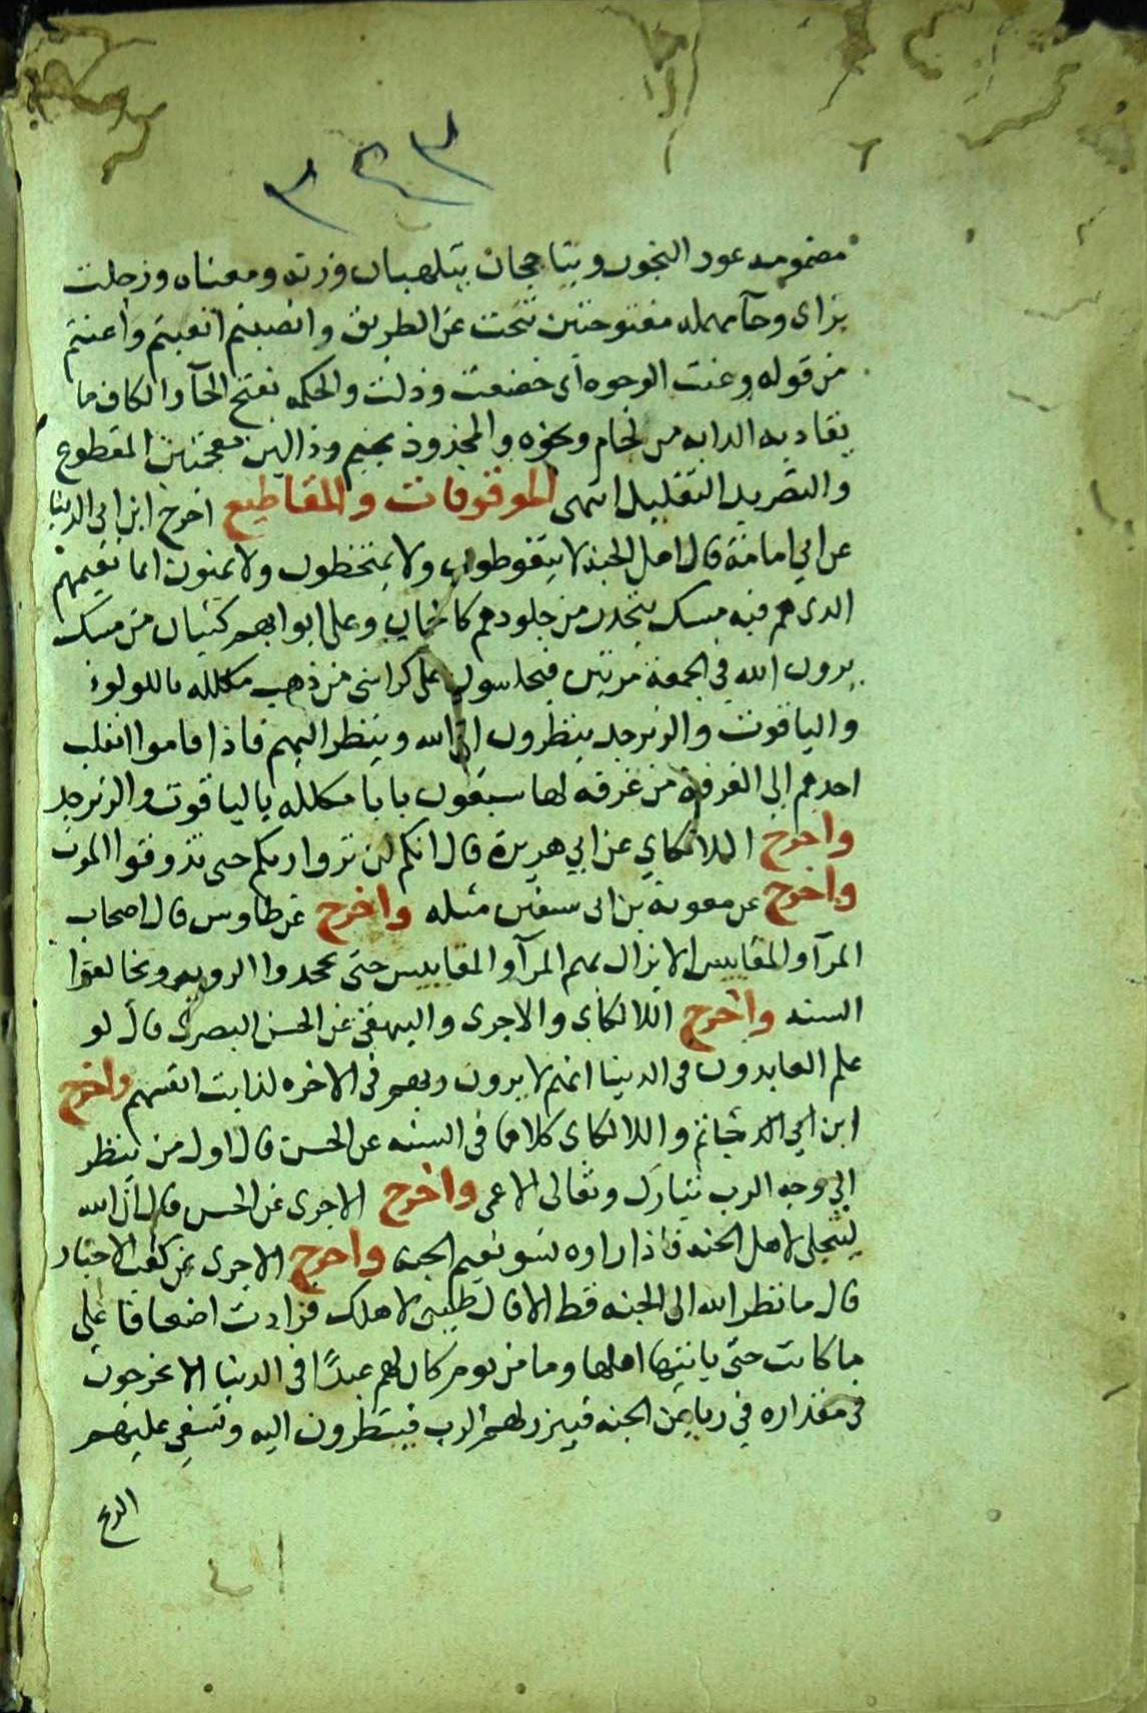 ٣٢٣
مضمومه عود البخور ويتاججان يتلهبان وزنه ومعناه وزحلت
بزاى وحآ مهمله مفتوحتين تنحت عن الطريق وانصبتم اتعبتم واعنتم
من قوله وعنت الوجوه اى خضعت وذلت والحكمه بفتح الحآ والكاف ما
يقاد به الدابه من لجام ونحوه والمجذوذ بجيم وذالين معجمتين المقطوع
والتصريد التقليل انتهى الموقوفات والمقاطيع اخرج ابن ابى الدنيا
عن ابي امامة قال اهل الجنه لا يتغوطون ولا يمتخطون ولا يمنون انما نعيمهم
الذى هم فيه مسك يتحدر من جلودهم كالجمان وعلى ابوابهم كثبان من مسك
يرون الله في الجمعة مرتين فيجلسون على كراسى من ذهب مكلله باللولوء
والياقوت والزبرجد ينظرون الى الله وينظر اليهم فاذا قاموا انقلب
احدهم الى الغرفه من غرفه لها سبعون بابا مكلله بالياقوت والزبرجد
واخرج اللالكاي عن ابي هريرة قال انكم لن تروا ربكم حتى تذوقوا الموت
واخرج عن معوية بن ابى سفين مثله واخرج عن طاوس قال اصحاب
المرآ والمقاييس لا يزال بهم المرآ والمقاييس حتى يجحدوا الرويه ويخالفوا
السنه واخرج اللالكاى والاجرى والبيهقى عن الحسن البصرى قال لو
علم العابدون فى الدينا انهم لا يرون ربهم فى الاخره لذابت انفسهم واخرج
ابن ابي حاتم واللالكاى كلاهما فى السنه عن الحسن قال اول من ينظر
الى وجه الرب تبارك وتعالى الاعمى واخرج الاجرى عن الحسن قال ان الله
ليتجلى لاهل الجنه فاذا راوه نسو نعيم الجنه واخرج الاجرى عن كعب الاحبار
قال ما نظر الله الى الجنه قط الا قال طيبى لاهلك فزادت اضعافا على
ما كانت حتى ياتيها اهلها وما من يوم كان لهم عيدًا فى الدنيا الا يخرجون
فى مقداره في رياض الجنه فيبرز لهم الرب فينظرون اليه وتسفى عليهم
الريح